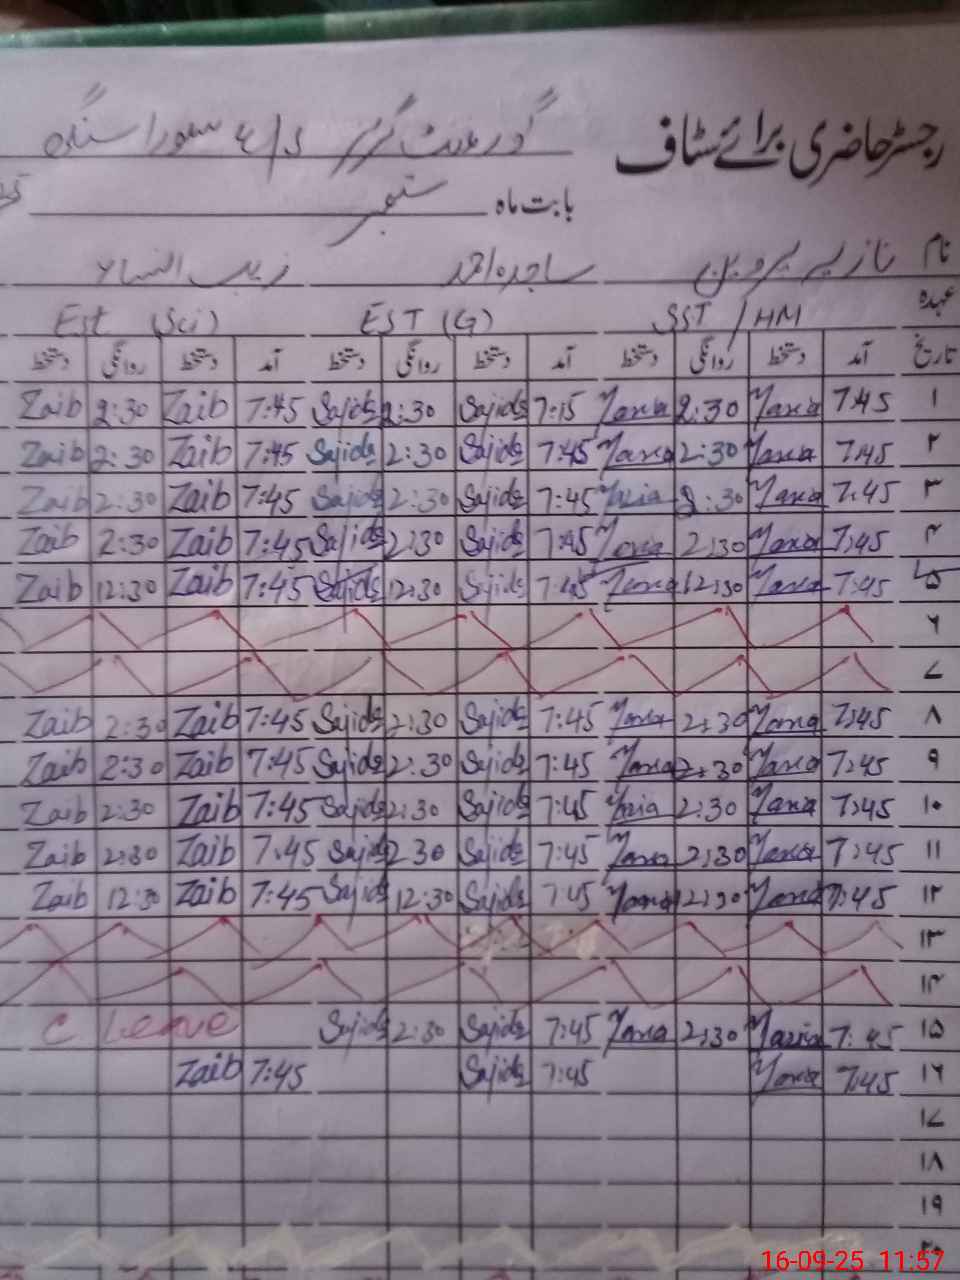 رجسٹر حاضری برائے سٹاف گورنمنٹ گرلز
بابت ماہ ستمبر
نام نازیہ پروین ساجدہ احمد زیب النساء
عہدہ SST / HM EST (G) Est (Sci)
تاریخ آمد دستخط روانگی دستخط آمد دستخط روانگی دستخط آمد دستخط روانگی دستخط
۱ 7:45 Nazia 2:30 Nazia 7:15 Sajida 2:30 Sajida 7:45 Zaib 2:30 Zaib
۲ 7:45 Nazia 2:30 Nazia 7:45 Sajida 2:30 Sajida 7:45 Zaib 2:30 Zaib
۳ 7:45 Nazia 2:30 Nazia 7:45 Sajida 2:30 Sajida 7:45 Zaib 2:30 Zaib
۴ 7:45 Nazia 2:30 Nazia 7:45 Sajida 2:30 Sajida 7:45 Zaib 2:30 Zaib
۵ 7:45 Nazia 12:30 Nazia 7:45 Sajida 12:30 Sajida 7:45 Zaib 12:30 Zaib
۶
۷
۸ 7:45 Nazia 2:30 Nazia 7:45 Sajida 2:30 Sajida 7:45 Zaib 2:30 Zaib
۹ 7:45 Nazia 2:30 Nazia 7:45 Sajida 2:30 Sajida 7:45 Zaib 2:30 Zaib
۱۰ 7:45 Nazia 2:30 Nazia 7:45 Sajida 2:30 Sajida 7:45 Zaib 2:30 Zaib
۱۱ 7:45 Nazia 2:30 Nazia 7:45 Sajida 2 30 Sajida 7:45 Zaib 2:30 Zaib
۱۲ 7:45 Nazia 12:30 Nazia 7:45 Sajida 12:30 Sajida 7:45 Zaib 12:30 Zaib
۱۳
۱۴
۱۵ 7:45 Nazia 2:30 Nazia 7:45 Sajida 2:30 Sajida C Leave
۱۶ 7:45 Nazia 7:45 Sajida 7:45 Zaib
۱۷
۱۸
۱۹
۲۰
16-09-25 11:57